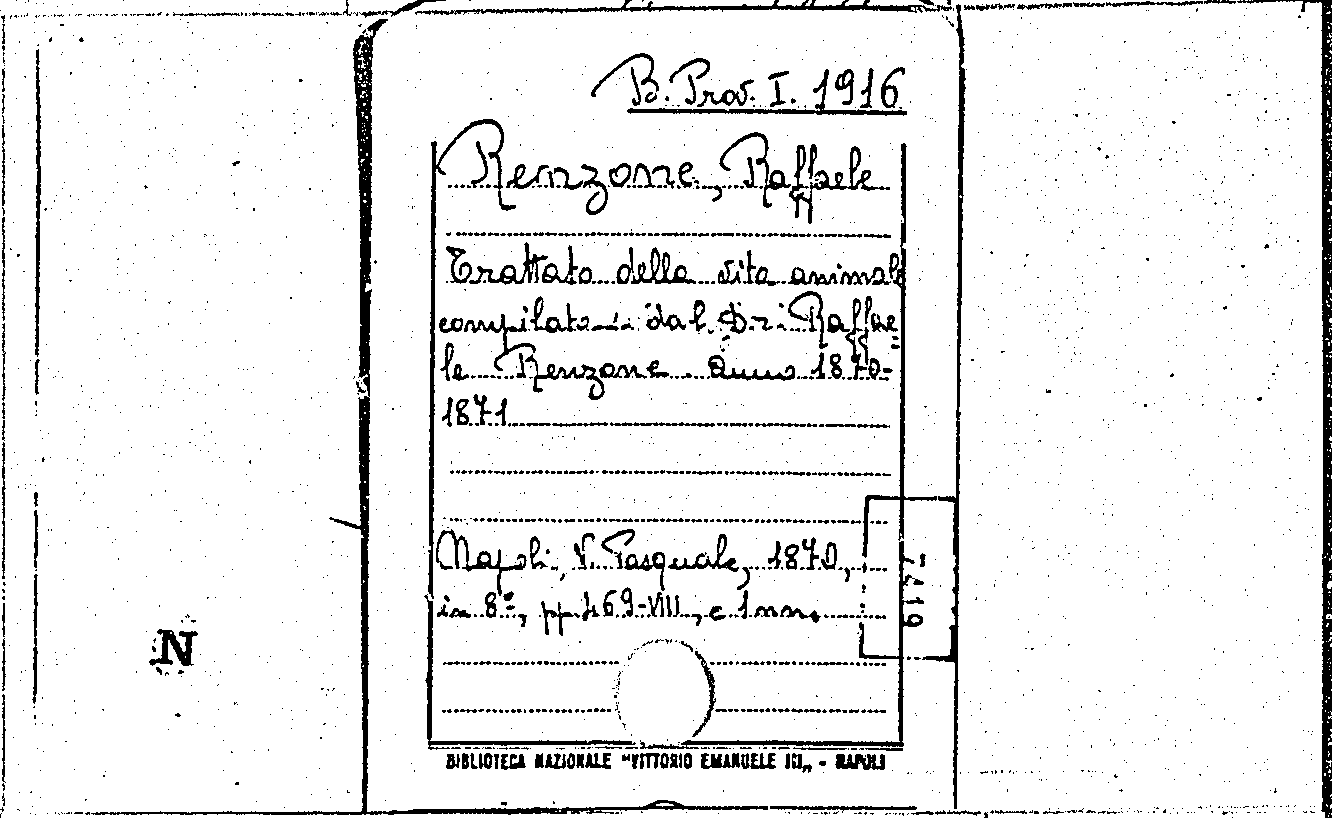 B. Prov. I. 1916
Renzone, Raffaele
Trattato della vita animale
compilato dal Dr. Raffae
le Renzone. Anno 1870-
1871
Napoli, V. Pasquale, 1870,
in 8º, pp. 469-VIII, c 1 nn.
7419
N
BIBLIOTECA NAZIONALE "VITTORIO EMANUELE III„ - NAPOLI